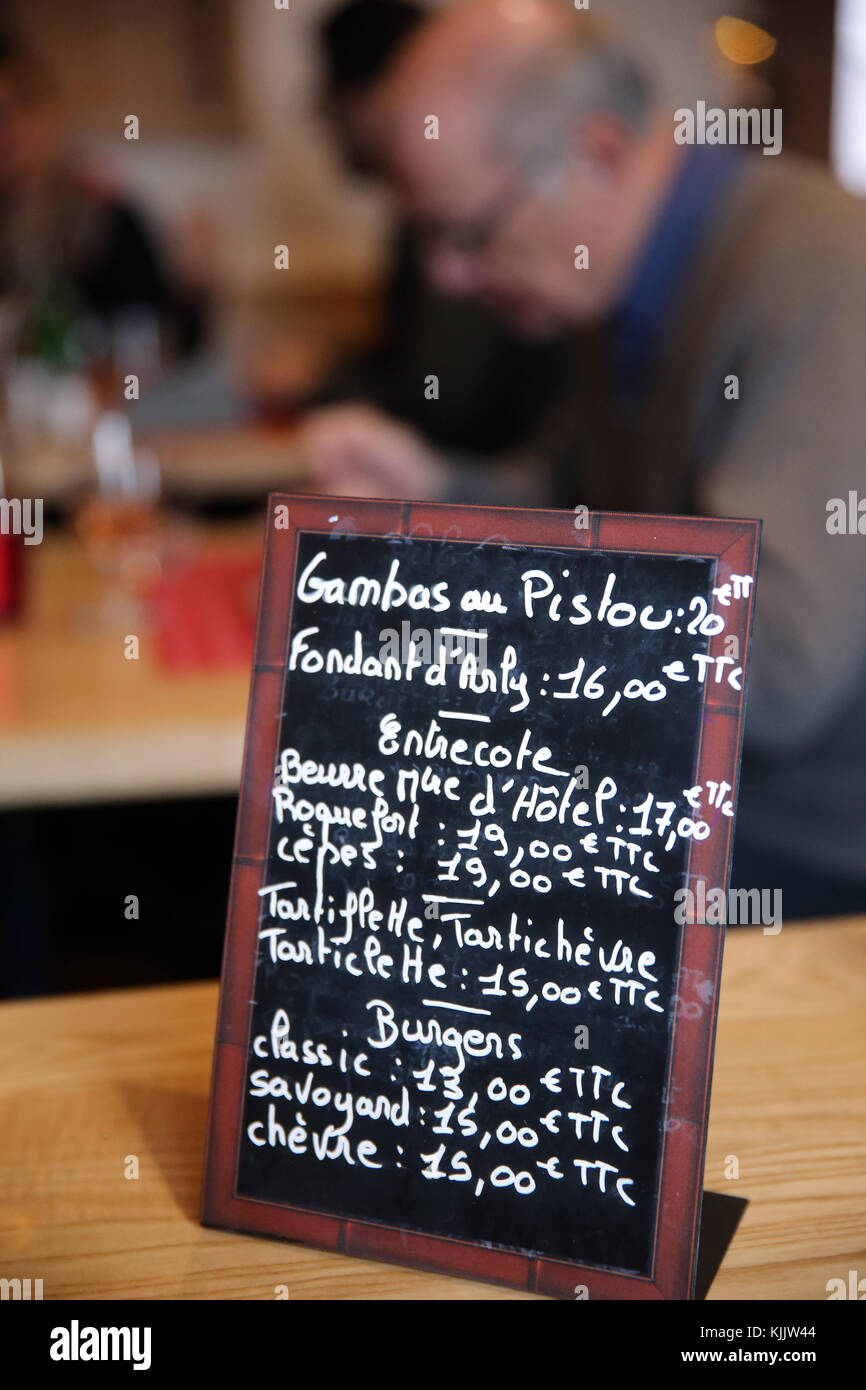 Gambas au Pistou : 20 € TT
Fondant d'Arly : 16,00 € TTC
Entrecote
Beurre Mue d'Hôtel : 17,00 € TTC
Roquefort : 19,00 € TTC
cèpes : 19,00 € TTC
Tartiflette, Tartichèvre
Tarticlette : 15,00 € TTC
Burgers
classic : 13,00 € TTC
savoyard : 15,00 € TTC
chèvre : 15,00 € TTC
alamy
Image ID: KJJW44
www.alamy.com